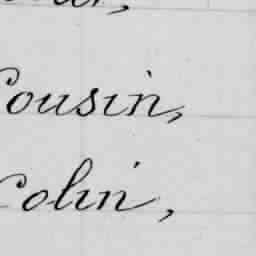 Cousin,
Colin,